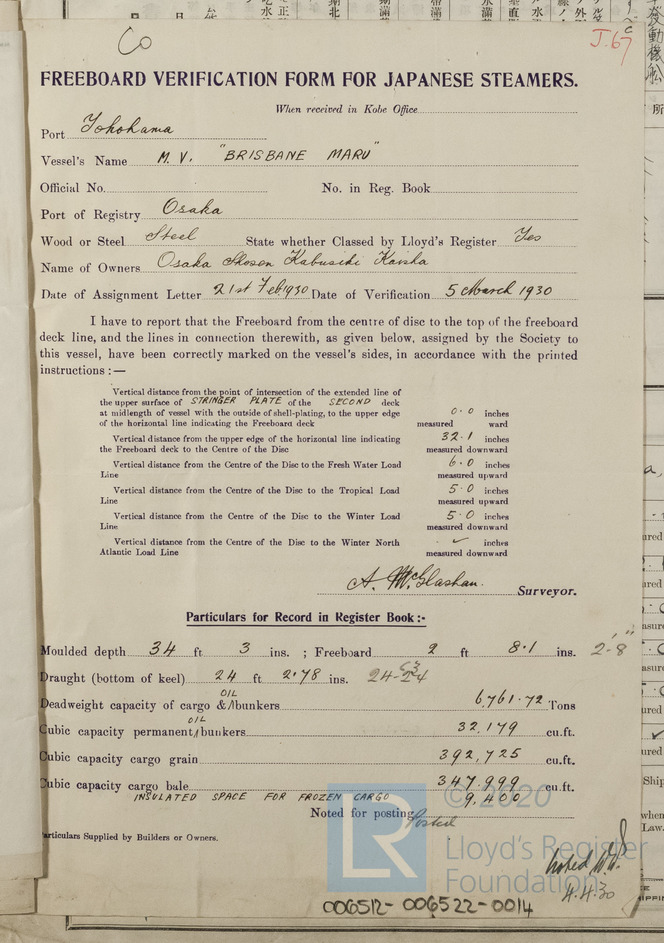 Co
J.67
FREEBOARD VERIFICATION FORM FOR JAPANESE STEAMERS.
When received in Kobe Office
Port Yokohama
Vessel's Name M.V. "BRISBANE MARU"
Official No. No. in Reg. Book
Port of Registry Osaka
Wood or Steel Steel State whether Classed by Lloyd's Register Yes
Name of Owners Osaka Shosen Kabusiki Kaisha
Date of Assignment Letter 21st Feb 1930 Date of Verification 5 March 1930
I have to report that the Freeboard from the centre of disc to the top of the freeboard
deck line, and the lines in connection therewith, as given below, assigned by the Society to
this vessel, have been correctly marked on the vessel's sides, in accordance with the printed
instructions :—
Vertical distance from the point of intersection of the extended line of
the upper surface of STRINGER PLATE of the SECOND deck
at midlength of vessel with the outside of shell-plating, to the upper edge 0·0 inches
of the horizontal line indicating the Freeboard deck measured ward
Vertical distance from the upper edge of the horizontal line indicating 32·1 inches
the Freeboard deck to the Centre of the Disc measured downward
Vertical distance from the Centre of the Disc to the Fresh Water Load 6·0 inches
Line measured upward
Vertical distance from the Centre of the Disc to the Tropical Load 5·0 inches
Line measured upward
Vertical distance from the Centre of the Disc to the Winter Load 5·0 inches
Line measured downward
Vertical distance from the Centre of the Disc to the Winter North ✓ inches
Atlantic Load Line measured downward
A. McGlashan. Surveyor.
Particulars for Record in Register Book :-
Moulded depth 34 ft 3 ins. ; Freeboard 2 ft 8·1 ins. 2'-8"
Draught (bottom of keel) 24 ft 2·78 ins.
Deadweight capacity of cargo & OIL bunkers 6,761·72 Tons
Cubic capacity permanent OIL bunkers 32,179 cu.ft.
Cubic capacity cargo grain 392,725 cu.ft.
Cubic capacity cargo bale 347,999 cu.ft.
INSULATED SPACE FOR FROZEN CARGO 9,400
Noted for posting Posted
Particulars Supplied by Builders or Owners.
© 2020
LR
Lloyd's Register
Foundation
Noted
4.4.30
006512-006522-0014